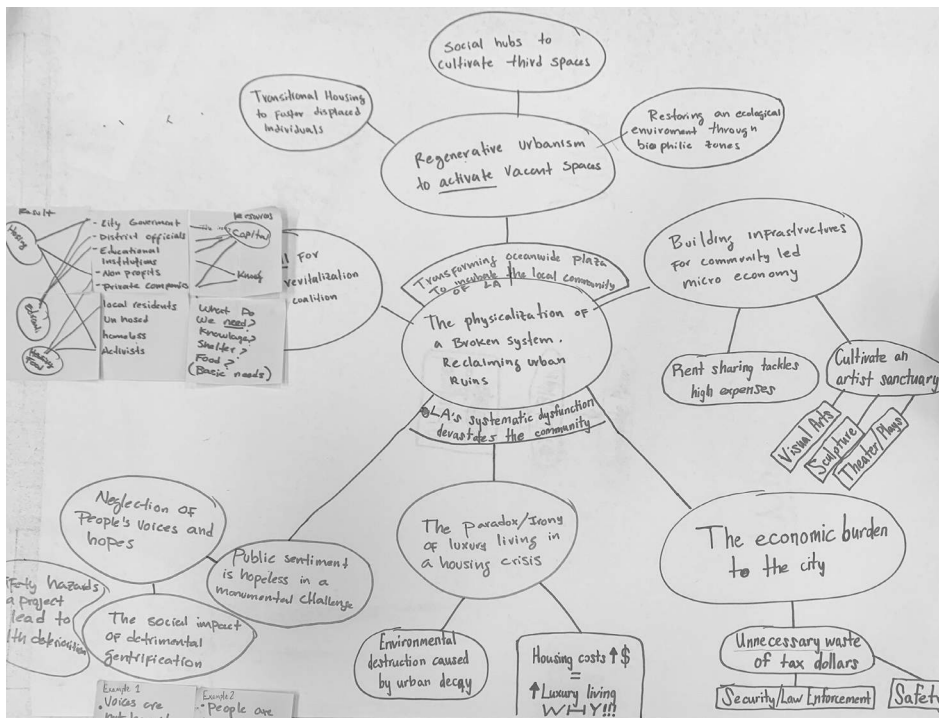 Social hubs to
cultivate third spaces
Transitional Housing
to Foster displaced
Individuals
Restoring an ecological
enviroment through
biophilic zones
Regenerative urbanism
to activate Vacant Spaces
Result
Housing
- City Goverment
- District officials
- Educational
Institutions
- Non profits
- Private companies
local residents
Un housed
homeless
Activists
Resources
Capital
What Do
We need?
Knowledge?
Shelter?
Food?
(Basic needs)
For
revitalization
coalition
Transforming oceanwide plaza
To incubate the local community
OF LA
The physicalization of
a Broken System.
Reclaiming urban
Ruins
LA's systematic dysfunction
devastates the community
Building infrastructures
For community led
micro economy
Rent sharing tackles
high expenses
Cultivate an
artist sanctuary
Visual Arts
Sculpture
Theater/Plays
Neglection of
People's voices and
hopes
Public sentiment
is hopeless in a
monumental challenge
The social impact
of detrimental
gentrification
hazards
a project
lead to
Example 1
• Voices are
Example 2
• People are
The paradox/Irony
of luxury living in
a housing crisis
Environmental
destruction caused
by urban decay
Housing costs ↑ $
=
↑ Luxury living
WHY!!!
The economic burden
to the city
Unnecessary waste
of tax dollars
Security/Law Enforcement
Safety